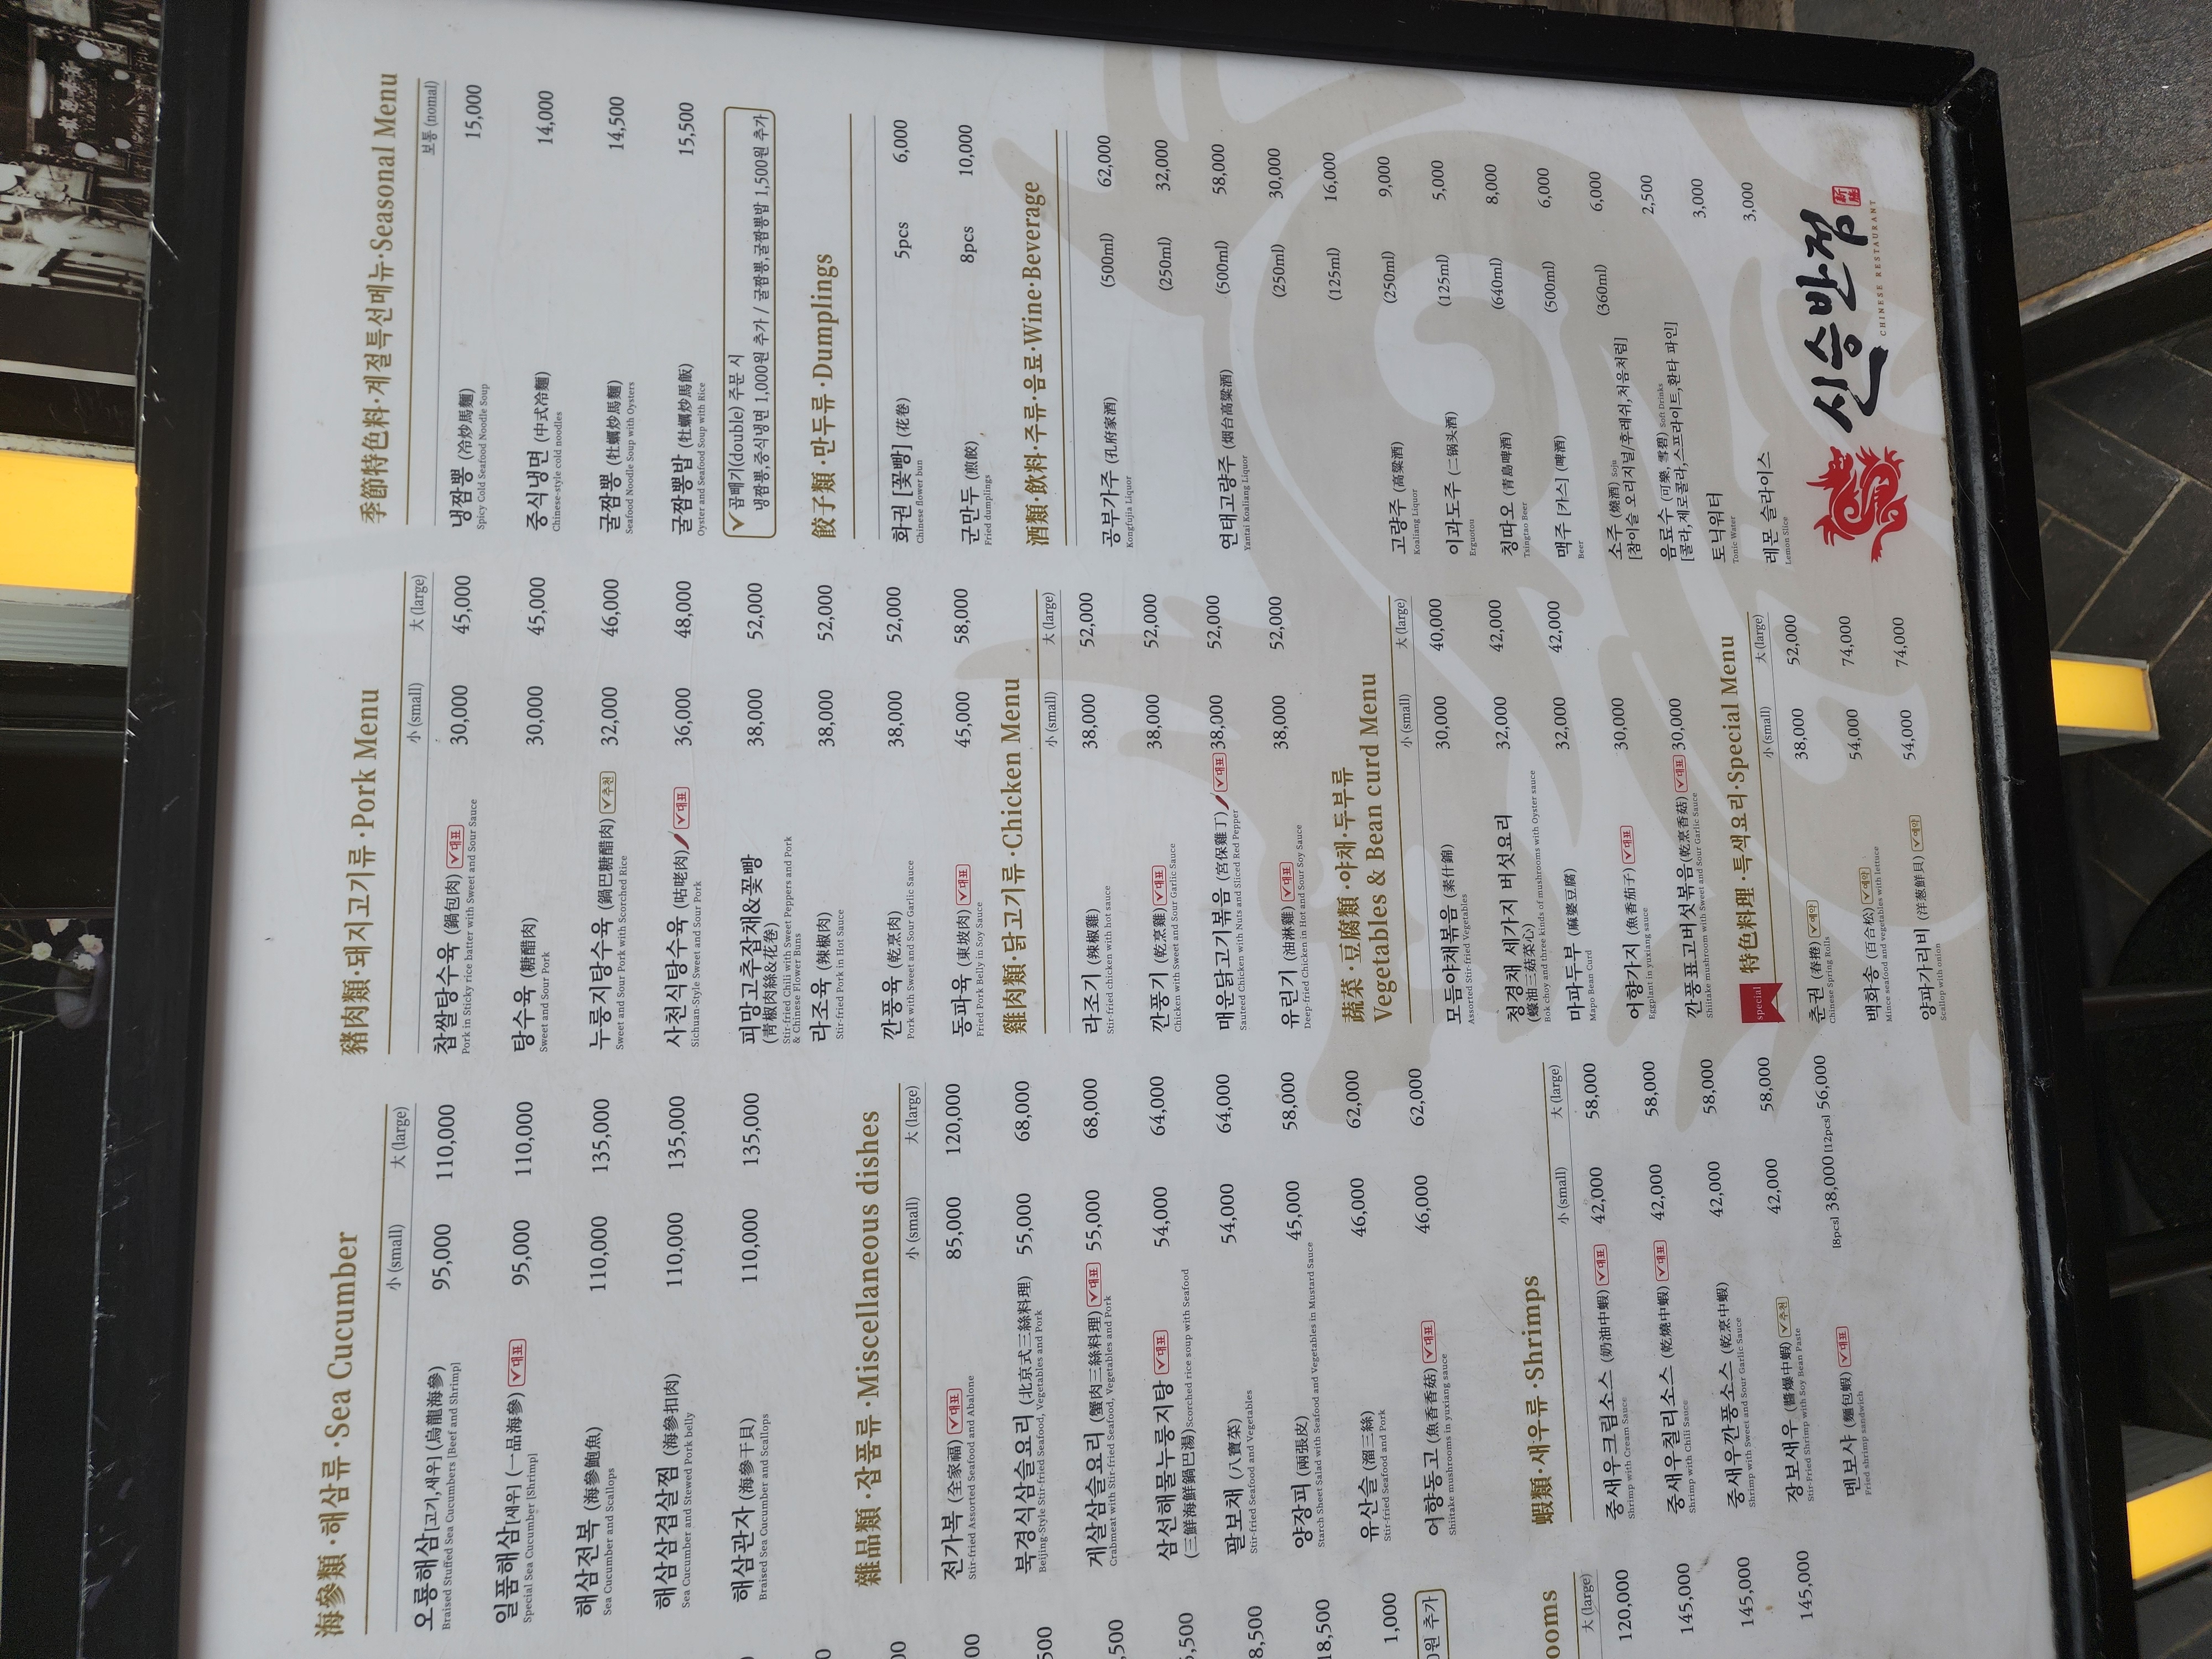 海參類·해삼류·Sea Cucumber
小 (small) 大 (large)
오룡해삼[고기,새우] (烏龍海參) 95,000 110,000
Braised Stuffed Sea Cucumbers [Beef and Shrimp]
일품해삼[새우] (一品海參) 대표 95,000 110,000
Special Sea Cucumber [Shrimp]
해삼전복 (海參鮑魚) 110,000 135,000
Sea Cucumber and Scallops
해삼삼겹살찜 (海參扣肉) 110,000 135,000
Sea Cucumber and Stewed Pork belly
해삼관자 (海參干貝) 110,000 135,000
Braised Sea Cucumber and Scallops
雜品類·잡품류·Miscellaneous dishes
小 (small) 大 (large)
전가복 (全家福) 대표 85,000 120,000
Stir-fried Assorted Seafood and Abalone
북경식삼슬요리 (北京式三絲料理) 55,000 68,000
Beijing-Style Stir-fried Seafood, Vegetables and Pork
게살삼슬요리 (蟹肉三絲料理) 대표 55,000 68,000
Crabmeat with Stir-fried Seafood, Vegetables and Pork
삼선해물누룽지탕 대표 54,000 64,000
(三鮮海鮮鍋巴湯)Scorched rice soup with Seafood
팔보채 (八寶菜) 54,000 64,000
Stir-fried Seafood and Vegetables
양장피 (兩張皮) 45,000 58,000
Starch Sheet Salad with Seafood and Vegetables in Mustard Sauce
유산슬 (溜三絲) 46,000 62,000
Stir-fried Seafood and Pork
어향동고 (魚香香菇) 대표 46,000 62,000
Shiitake mushrooms in yuxiang sauce
蝦類·새우류·Shrimps
小 (small) 大 (large)
중새우크림소스 (奶油中蝦) 대표 42,000 58,000
Shrimp with Cream Sauce
중새우칠리소스 (乾燒中蝦) 대표 42,000 58,000
Shrimp with Chili Sauce
중새우깐풍소스 (乾烹中蝦) 42,000 58,000
Shrimp with Sweet and Sour Garlic Sauce
장보새우 (醬爆中蝦) 추천 42,000 58,000
Stir-Fried Shrimp with Soy Bean Paste
멘보샤 (麵包蝦) 대표 [8pcs] 38,000 [12pcs] 56,000
Fried shrimp sandwich
豬肉類·돼지고기류·Pork Menu
小 (small) 大 (large)
찹쌀탕수육 (鍋包肉) 대표 30,000 45,000
Pork in Sticky rice batter with Sweet and Sour Sauce
탕수육 (糖醋肉) 30,000 45,000
Sweet and Sour Pork
누룽지탕수육 (鍋巴糖醋肉) 추천 32,000 46,000
Sweet and Sour Pork with Scorched Rice
사천식탕수육 (咕咾肉) 대표 36,000 48,000
Sichuan-Style Sweet and Sour Pork
피망고추잡채&꽃빵 38,000 52,000
(青椒肉絲&花卷)
Stir-fried Chili with Sweet Peppers and Pork
& Chinese Flower Buns
라조육 (辣椒肉) 38,000 52,000
Stir-fried Pork in Hot Sauce
깐풍육 (乾烹肉) 38,000 52,000
Pork with Sweet and Sour Garlic Sauce
동파육 (東坡肉) 대표 45,000 58,000
Fried Pork Belly in Soy Sauce
雞肉類·닭고기류·Chicken Menu
小 (small) 大 (large)
라조기 (辣椒雞) 38,000 52,000
Stir-fried chicken with hot sauce
깐풍기 (乾烹雞) 대표 38,000 52,000
Chicken with Sweet and Sour Garlic Sauce
매운닭고기볶음 (宮保雞丁) 대표 38,000 52,000
Sauteed Chicken with Nuts and Sliced Red Pepper
유린기 (油淋雞) 대표 38,000 52,000
Deep-fried Chicken in Hot and Sour Soy Sauce
蔬菜·豆腐類·야채·두부류
Vegetables & Bean curd Menu
小 (small) 大 (large)
모듬야채볶음 (素什錦) 30,000 40,000
Assorted Stir-fried Vegetables
청경채 세가지 버섯요리 32,000 42,000
(蠔油三菇菜心)
Bok choy and three kinds of mushrooms with Oyster sauce
마파두부 (麻婆豆腐) 32,000 42,000
Mapo Bean Curd
어향가지 (魚香茄子) 대표 30,000
Eggplant in yuxiang sauce
깐풍표고버섯볶음(乾烹香菇) 대표 30,000
Shiitake mushroom with Sweet and Sour Garlic Sauce
special 特色料理·특색요리·Special Menu
小 (small) 大 (large)
춘권 (春捲) 예약 38,000 52,000
Chinese Spring Rolls
백화송 (百合松) 예약 54,000 74,000
Mince seafood and vegetables with lettuce
양파가리비 (洋葱鮮貝) 예약 54,000 74,000
Scallop with onion
季節特色料·계절특선메뉴·Seasonal Menu
보통 (nomal)
냉짬뽕 (冷炒馬麵) 15,000
Spicy Cold Seafood Noodle Soup
중식냉면 (中式冷麵) 14,000
Chinese-style cold noodles
굴짬뽕 (牡蠣炒馬麵) 14,500
Seafood Noodle Soup with Oysters
굴짬뽕밥 (牡蠣炒馬飯) 15,500
Oyster and Seafood Soup with Rice
곱빼기(double) 주문 시
냉짬뽕,중식냉면 1,000원 추가 / 굴짬뽕,굴짬뽕밥 1,500원 추가
餃子類·만두류·Dumplings
화권 [꽃빵] (花卷) 5pcs 6,000
Chinese flower bun
군만두 (煎餃) 8pcs 10,000
Fried dumplings
酒類·飲料·주류·음료·Wine·Beverage
공부가주 (孔府家酒) (500ml) 62,000
Kongfujia Liquor
(250ml) 32,000
연태고량주 (烟台高粱酒) (500ml) 58,000
Yantai Koaliang Liquor
(250ml) 30,000
(125ml) 16,000
고량주 (高粱酒) (250ml) 9,000
Koaliang Liquor
이과도주 (二锅头酒) (125ml) 5,000
Erguotou
칭따오 (青島啤酒) (640ml) 8,000
Tsingtao Beer
맥주 [카스] (啤酒) (500ml) 6,000
Beer
소주 (燒酒) Soju (360ml) 6,000
[참이슬 오리지널/후레쉬,처음처럼]
음료수 (可樂, 雪碧) Soft Drinks 2,500
[콜라,제로콜라,스프라이트,환타 파인]
토닉워터 3,000
Tonic Water
레몬 슬라이스 3,000
Lemon Slice
신승반점
CHINESE RESTAURANT
,500
,500
8,500
18,500
1,000
원 추가
ooms
大 (large)
120,000
145,000
145,000
145,000